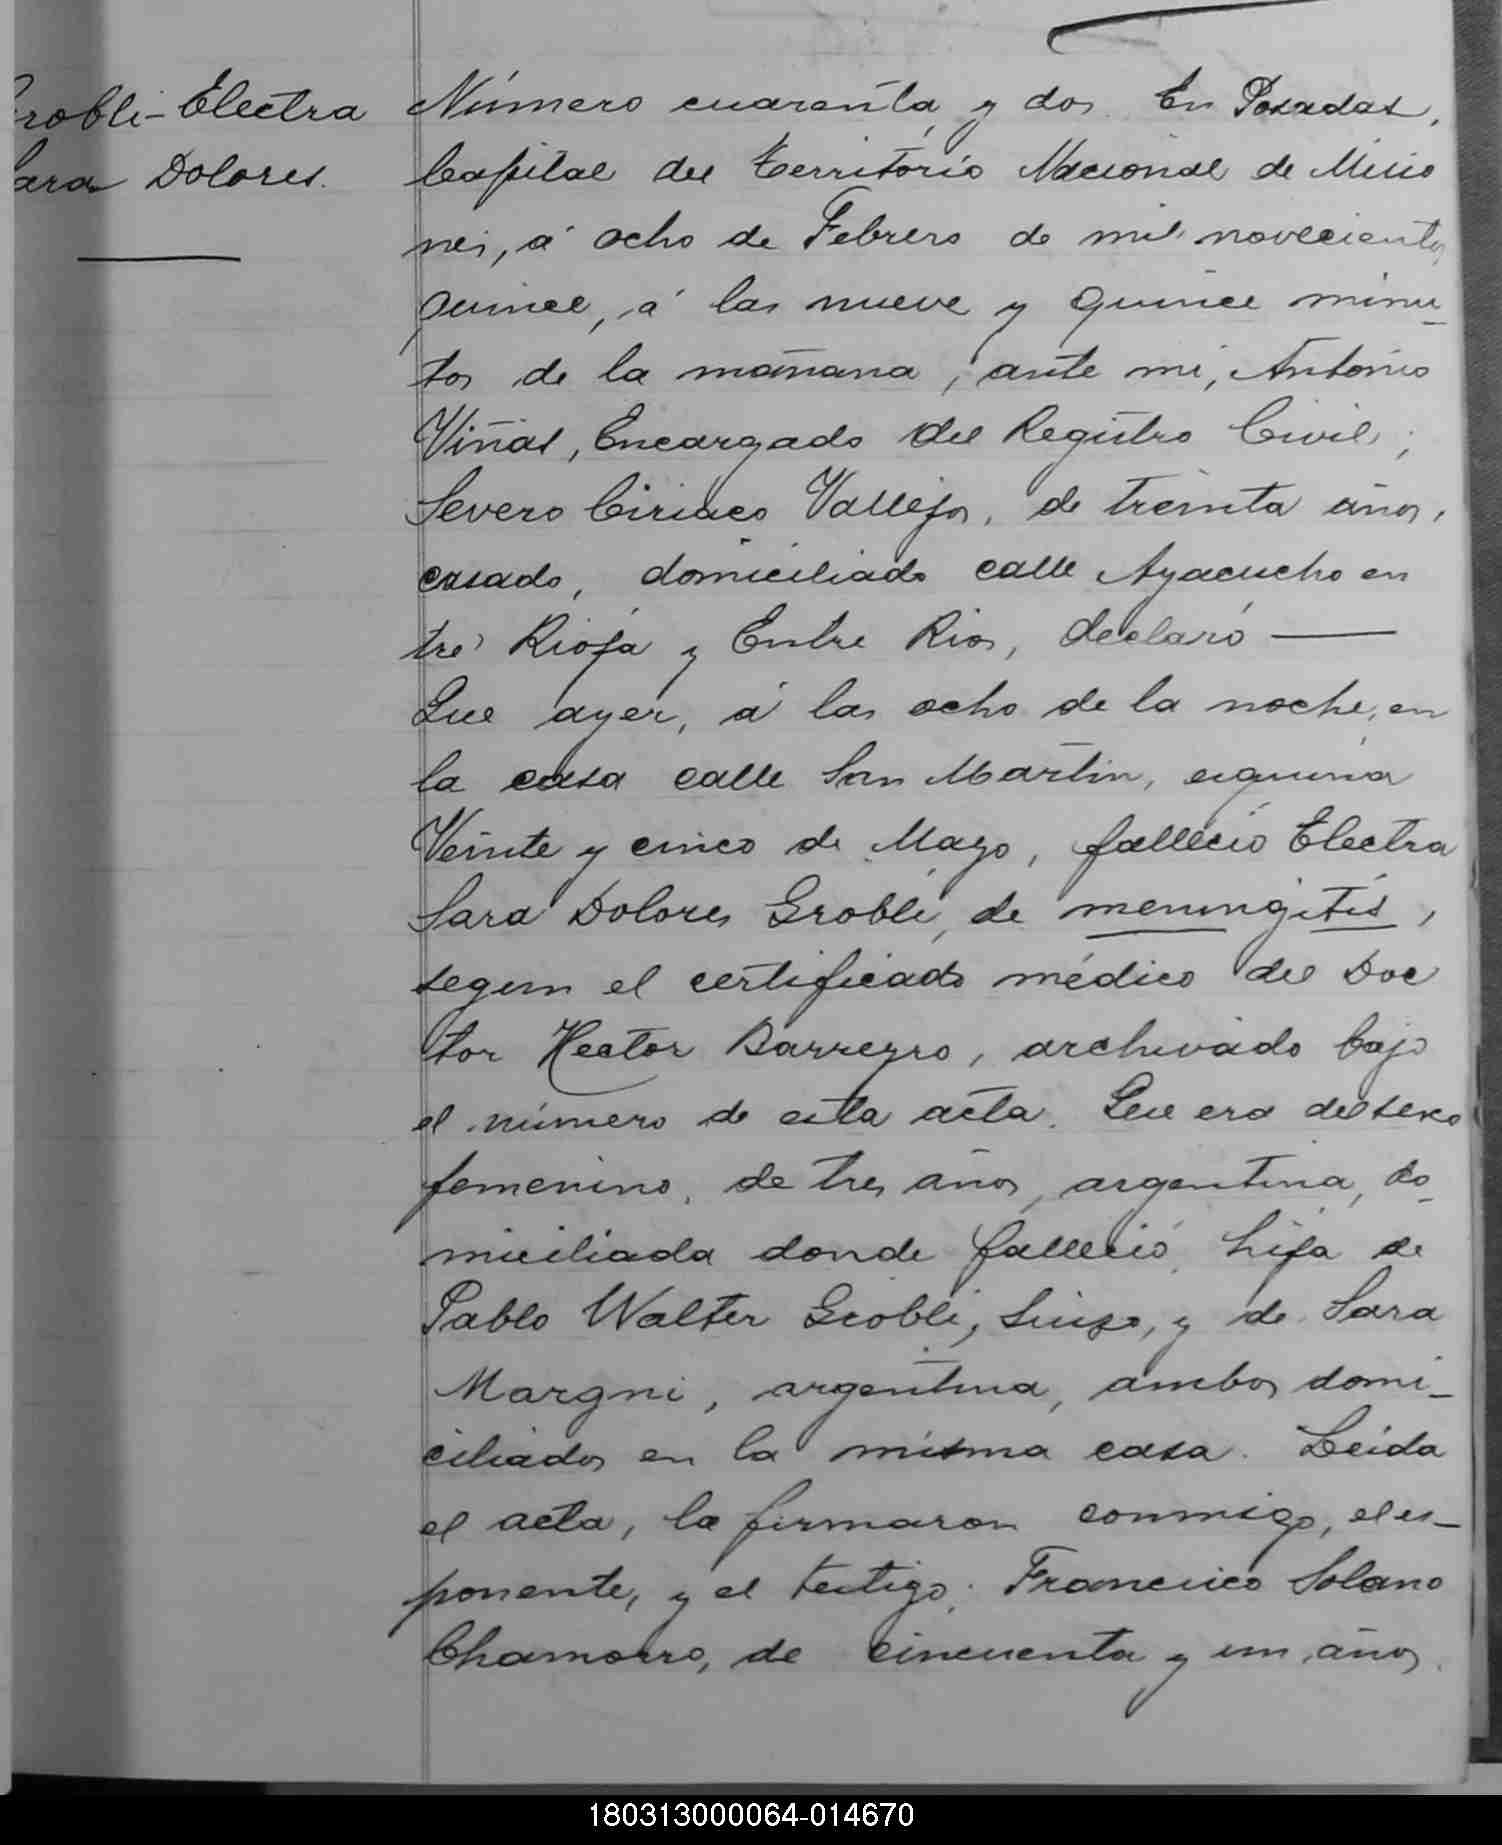 robli - Electra
ara Dolores.
Número cuarenta y dos. En Posadas,
Capital del Territorio Nacional de Misio
nes, á ocho de Febrero de mil novecientos
quince, á las nueve y quince minu-
tos de la mañana, ante mi, Antonio
Viñas, Encargado del Registro Civil;
Severo Ciriaco Vallejos, de treinta años,
casado, domiciliado calle Ayacucho en
tre Rioja y Entre Rios, declaró —
Que ayer, á las ocho de la noche, en
la casa calle San Martin, esquina
Veinte y cinco de Mayo, falleció Electra
Sara Dolores Grobli, de meningitis,
segun el certificado médico del Doc
tor Hector Barreyro, archivado bajo
el número de esta acta. Que era del sexo
femenino, de tres años, argentina, do-
miciliada donde falleció, hija de
Pablo Walter Grobli, Suizo, y de Sara
Margni, argentina, ambos domi-
ciliados en la misma casa. Leida
el acta, la firmaron conmigo, el es-
ponente, y el testigo: Francisco Solano
Chamorro, de cincuenta y un años,
180313000064-014670